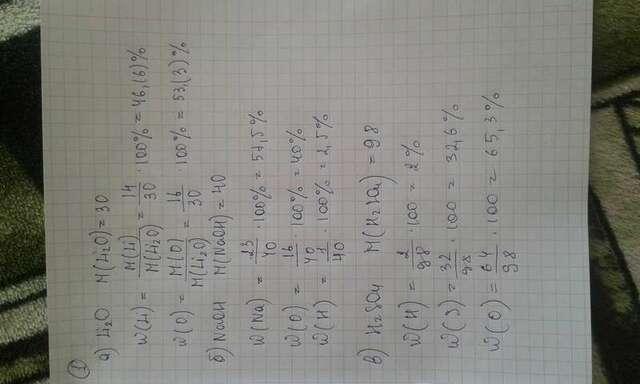 1
а) Li₂O M(Li₂O) = 30
W(Li) = M(Li)/M(Li₂O) = 14/30 · 100% = 46,(6)%
W(O) = M(O)/M(Li₂O) = 16/30 · 100% = 53,(3)%
б) NaOH M(NaOH) = 40
W(Na) = 23/40 · 100% = 57,5%
W(O) = 16/40 · 100% = 40%
W(H) = 1/40 · 100% = 2,5%
в) H₂SO₄ M(H₂SO₄) = 98
W(H) = 2/98 · 100 = 2%
W(S) = 32/98 · 100 = 32,6%
W(O) = 64/98 · 100 = 65,3%